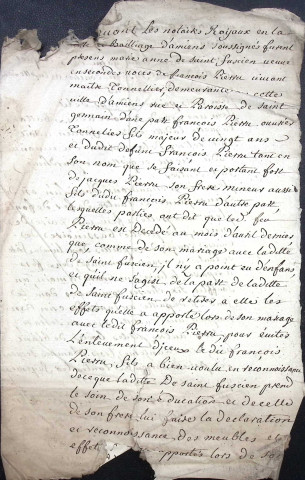 les notaires Royaux en la
Bailliage d'amiens soussignés furent
presens marie anne de saint fuscien veuve
en secondes noces de françois Pierru vivant
maitre Tonnellier, demeurante cette
ville d'amiens rue et Paroisse de saint
germain d'une part françois Pierru ouvrier
Tonnelier fils majeur de vingt ans
et dudit defunt François Pierru tant en
son nom que se faisant et portant fort
de jacques Pierru son frere mineur aussi
fils dudit françois Pierru d'autre part
lesquelles parties ont dit que led. feu
Pierru est Decedé au mois d'avril dernier
que comme de son mariage avec laditte
de saint fuscien, il ny a point eu d'enfans
et quil ne sagist de la part de laditte
de saint fuscien de retirer a elle les
effets quelle a apporté lors de son mariage
avec ledit françois Pierru, pour eviter
L'enlevement d'iceux le dit françois
Pierru, fils a bien voulu en reconnoissance
de ce que laditte De saint fuscien prend
le soin de son education et de celle
de son frere lui faire la declaration
et reconnoissance, des meubles et
effets apportés lors de son